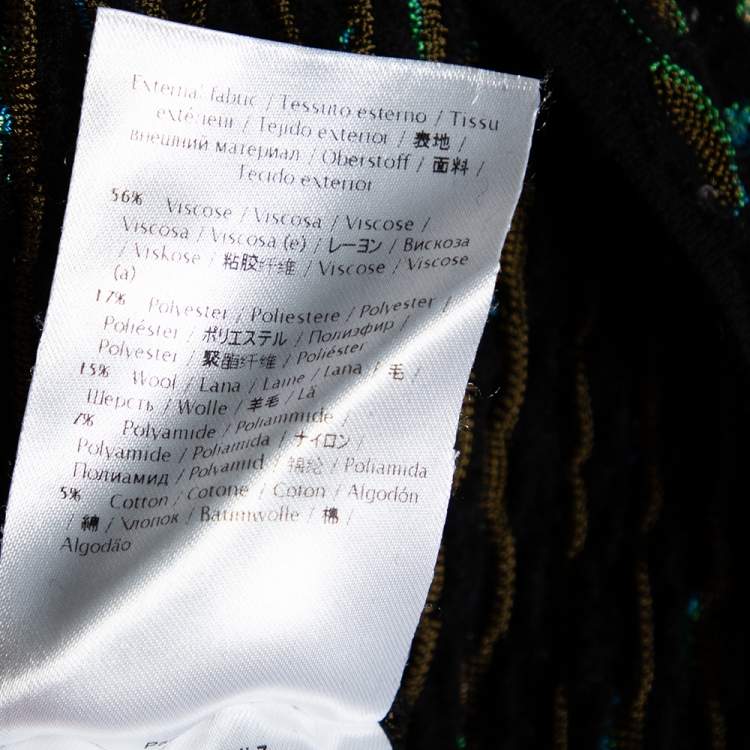 External fabric / Tessuto esterno / Tissu
extérieur / Tejido exterior / 表地 /
внешний материал / Oberstoff / 面料 /
Tecido exterior
56% Viscose / Viscosa / Viscose /
Viscosa / Viscosa (e) / レーヨン / Вискоза
/ Viskose / 粘胶纤维 / Viscose / Viscose
(a)
17% Polyester / Poliestere / Polyester /
Poliéster / ポリエステル / Полиэфир /
Polyester / 聚酯纤维 / Poliéster
15% Wool / Lana / Laine / Lana / 毛 /
Шерсть / Wolle / 羊毛 / Lã
7% Polyamide / Poliammide /
Polyamide / Poliamida / ナイロン /
Полиамид / Polyamid / 锦纶 / Poliamida
5% Cotton / Cotone / Coton / Algodón
/ 綿 / Хлопок / Baumwolle / 棉 /
Algodão